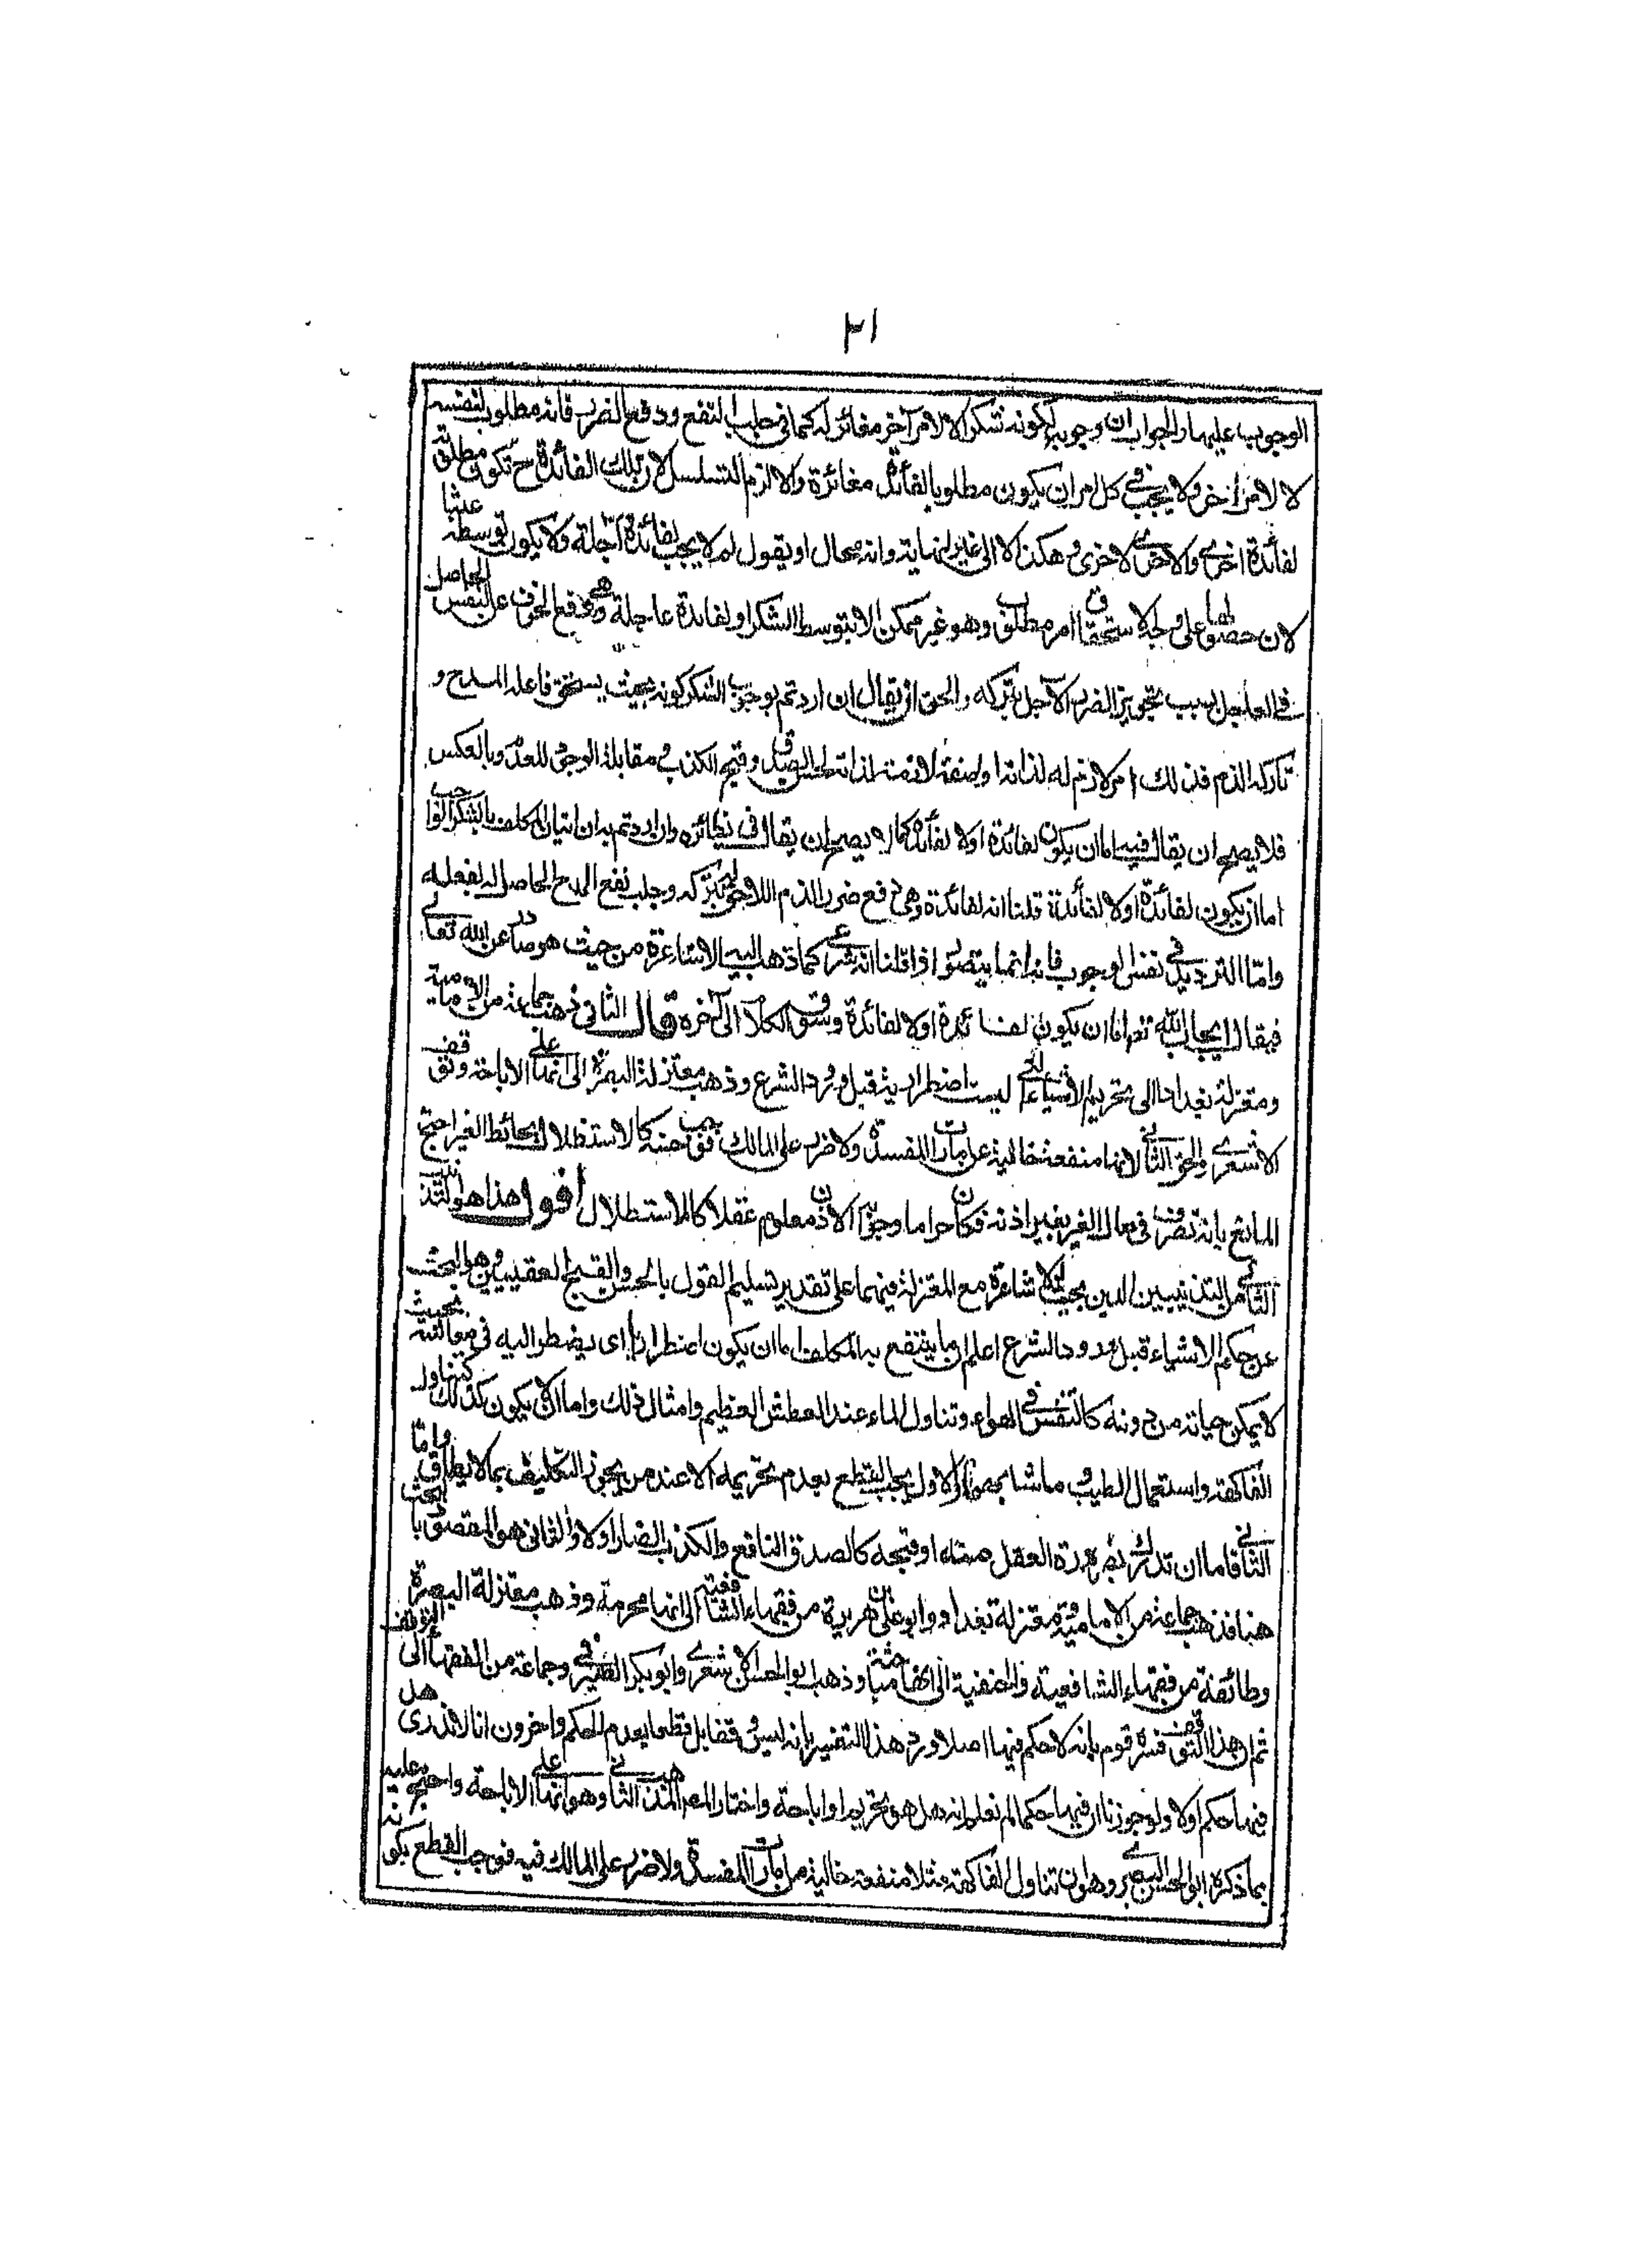 ٢١
الوجوب عليهما والجواب ان وجوبه لكونه شكرا لا لامر آخر مغائر له كما فى جلب النفع ودفع الضرر فانه مطلوب لنفسه
لا لامر آخر ولا يجب فى كل امر ان يكون مطلوبا لفائدة مغائرة والا لزم التسلسل لان تلك الفائدة ح تكون مطلوبة
لفائدة اخرى والاخرى لاخرى وهكذا الا الى غير النهاية وانه محال او يقول لم لا يجب لفائدة آجلة ولا يكون توسطه عبثا
لان حصولها على وجه الاستحقاق امر مطلوب وهو غير ممكن الا بتوسط الشكر او لفائدة عاجلة وهى دفع الخوف عن النفس الحاصل
فى العاجل بسبب تجويز الضرر الآجل بتركه والحق ان يقال ان اردتم بوجوب الشكر كونه بحيث يستحق فاعله المدح و
تاركه الذم فذلك امر لازم له لذاته او لصفة لازمة لذاته كحسن الصدق وقبح الكذب ومقابلة الوجود للعدم وبالعكس
فلا يصح ان يقال فيه اما ان يكون لفائدة او لا لفائدة كما لا يصح ان يقال فى نظائره وان اردتم به ان اتيان المكلف بالشكر الواجب
اما ان يكون لفائدة او لا لفائدة قلنا انه لفائدة وهى دفع ضرر الذم اللاحق بتركه وجلب نفع المدح الحاصل له بفعله
وامّا الترديد فى نفس الوجوب فانه انما يتصور اذا قلنا انه شرعى كما ذهب اليه الاشاعرة من حيث هو صادر عن الله تعالى
فيقال ايجاب الله تعه اما ان يكون لفائدة او لا لفائدة وسوق الكلام الى آخره قال الثانى ذهب جماعة من الامامية
ومعتزلة بغداد الى تحريم الاشياء التى ليست اضطرارية قبل ورود الشرع وذهب معتزلة البصرة الى انها على الاباحة وتوقف
الاشعرى والحق الثانى لانها منفعة خالية عن امارات المفسدة ولا ضرر على المالك فوجب حسنه كالاستظلال بحائط الغير احتج
المانع بانه تصرف فى مال الغير بغير اذنه فكان حراما وجوابه الاذن معلوم عقلا كالاستظلال أقول هذا هو التذنيب
الثانى من التذنيبين الذين يبحث الاشاعرة مع المعتزلة فيهما على تقدير تسليم القول بالحسن والقبح العقليين وهو البحث
عن حكم الاشياء قبل ورود الشرع اعلم ان ما ينتفع به المكلف اما ان يكون اضطراريا اى يضطر اليه فى معاشه بحيث
لا يمكن حياته من دونه كالتنفس فى الهواء وتناول الماء عند العطش العظيم وامثال ذلك واما ان لا يكون كذلك كتناول
الفاكهة واستعمال الطيب وما شابههما والاول يجب القطع بعدم تحريمه الا عند من يجوز التكليف بما لا يطاق وامّا
الثانى فاما ان تدرك بضرورة العقل حسنه او قبحه كالصدق النافع والكذب الضار او لا والثانى هو المقصود بالبحث
هنا فذهب جماعة من الامامية ومعتزلة بغداد وابو على بن ابى هريرة من فقهاء الشافعية الى انها محرمة وذهب معتزلة البصرة
وطائفة من فقهاء الشافعية والحنفية الى انها مباحة وذهب ابو الحسن الاشعرى وابو بكر الصيرفى وجماعة من الفقهاء الى التوقف
ثم ان هذا التوقف فسره قوم بانه لا حكم فيها اصلا ورد هذا التفسير بانه ليس وقفا بل قطعا بعدم الحكم وآخرون انا لا ندرى هل
فيها حكم او لا ولو جوزنا ان فيها حكما لم نعلم انه هل هو تحريم او اباحة واختار المصه المذهب الثانى وهو انها على الاباحة واحتج عليه
بما ذكره ابو الحسين البصرى وهو ان تناول الفاكهة مثلا منفعة خالية من امارات المفسدة ولا ضرر على المالك فيه فوجب القطع بكونه